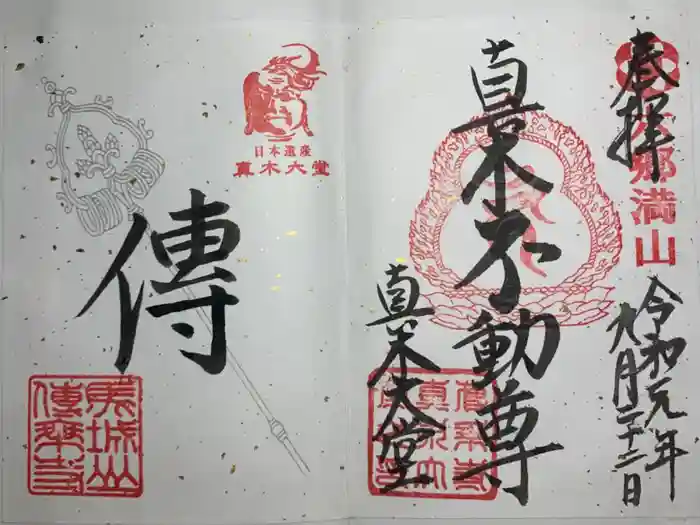 奉拝
六郷満山
令和元年
九月二十二日
真木不動尊
真木大堂
日本遺産
真木大堂
傳
馬城山
傳乗寺